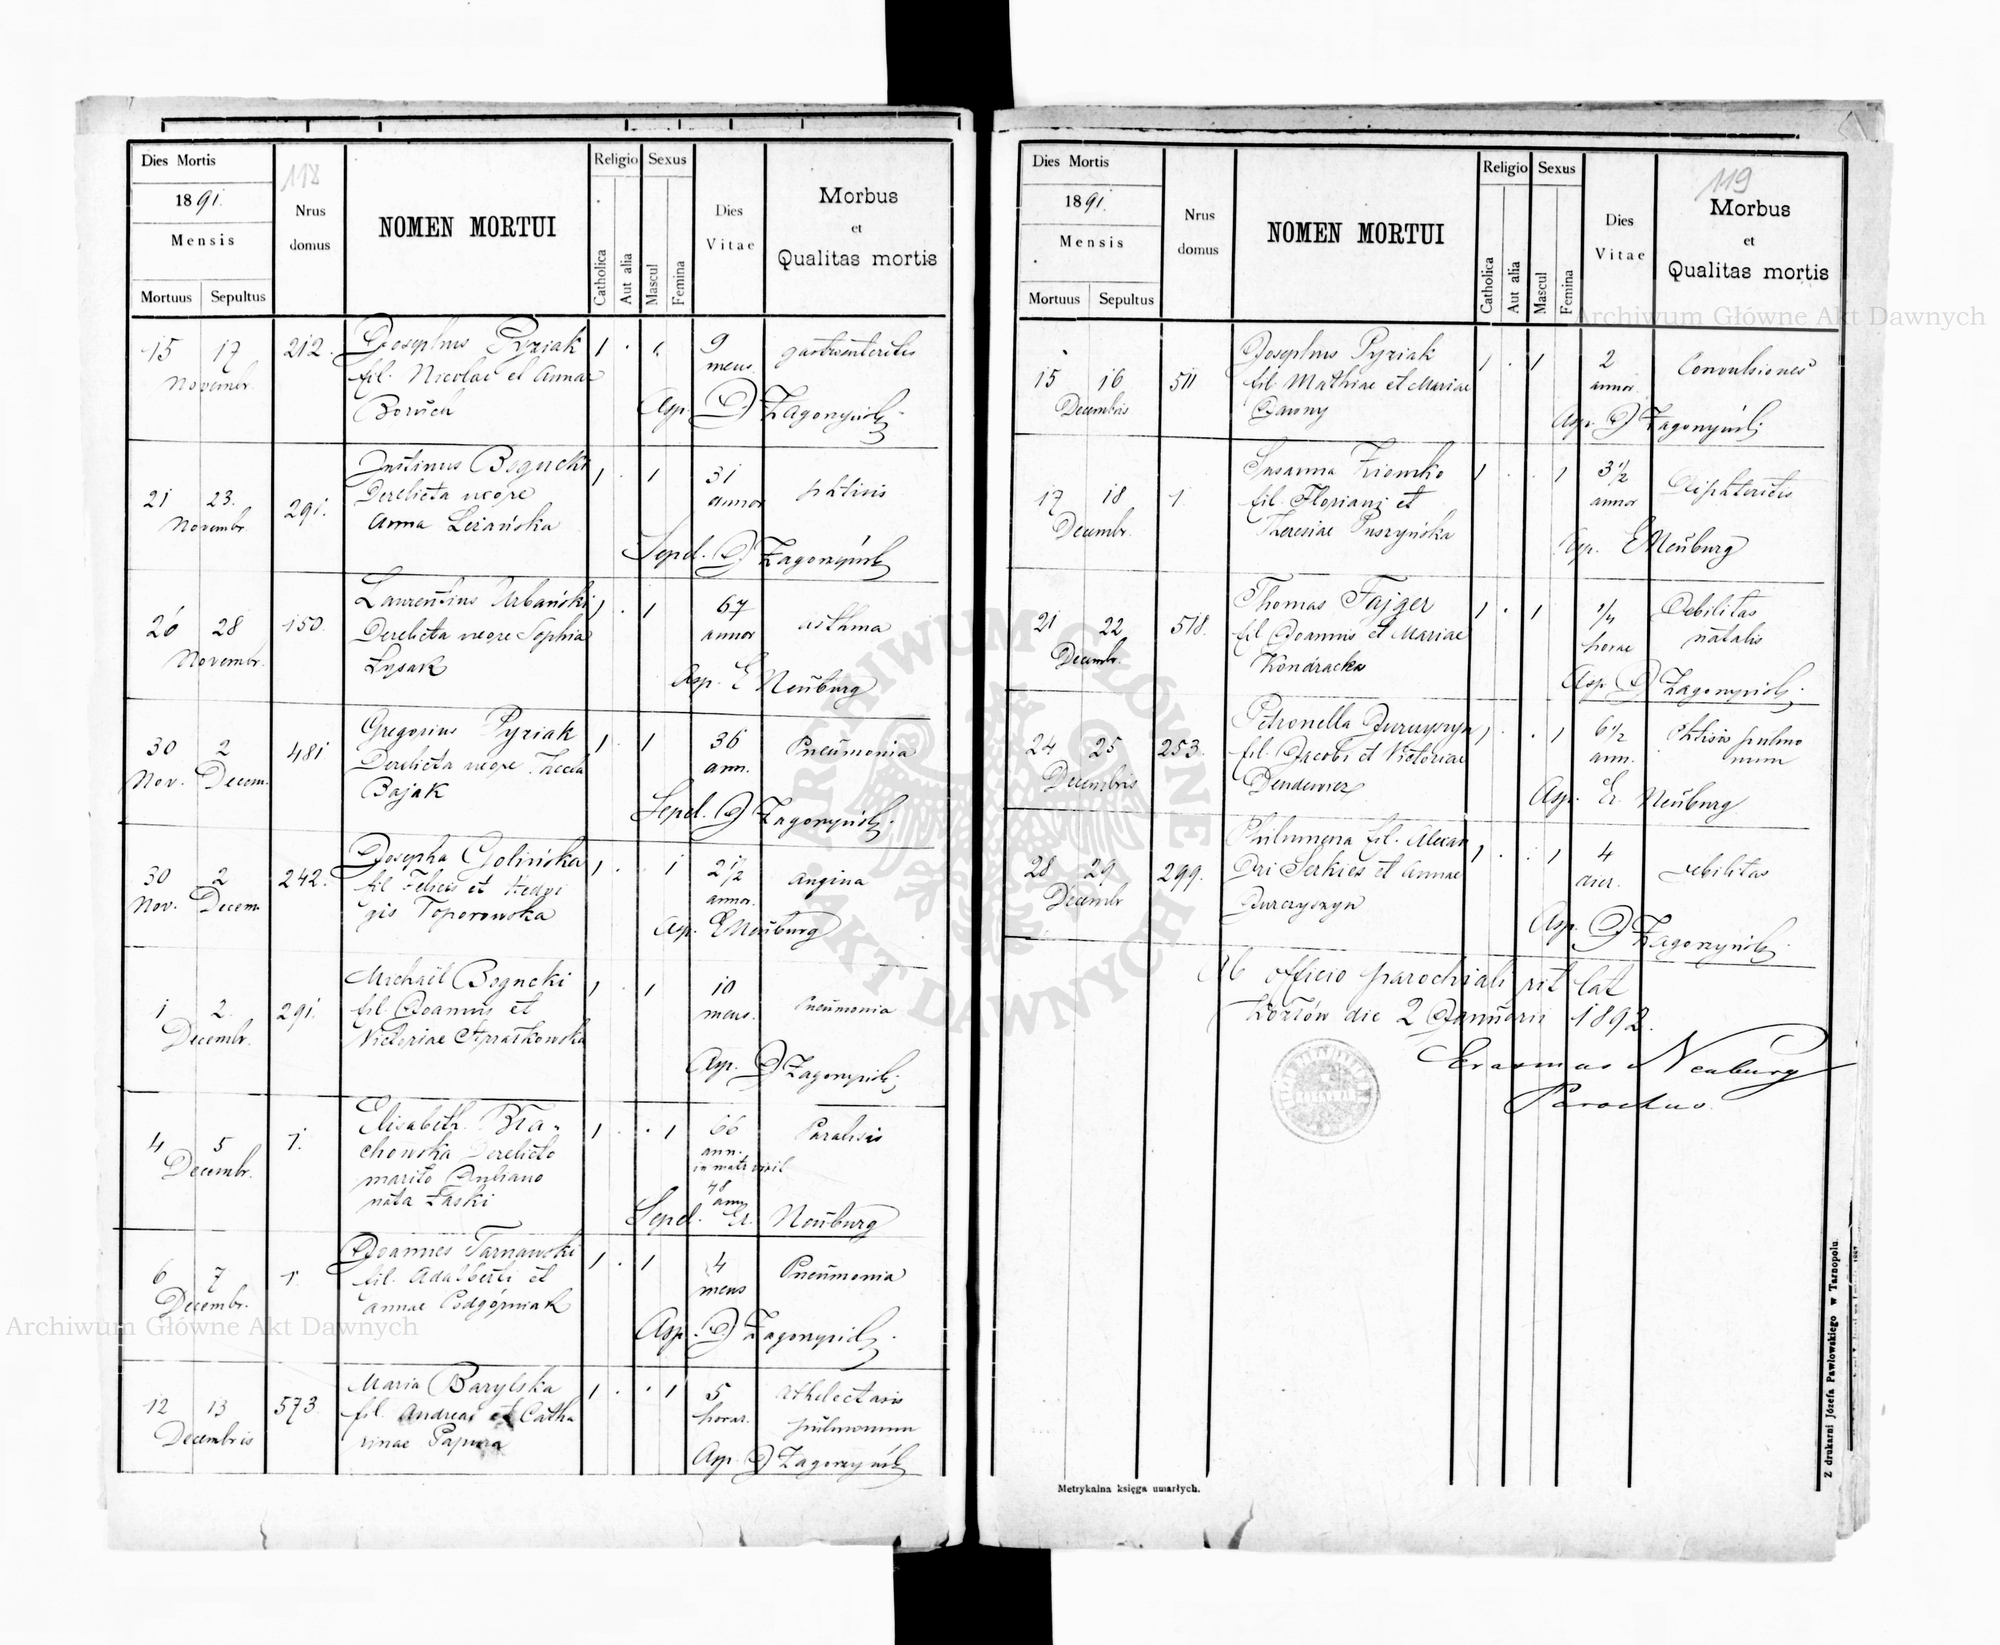 118
Dies Mortis
1891.
Mensis
Mortuus Sepultus
Nrus domus
NOMEN MORTUI
Religio
Catholica
Aut alia
Sexus
Mascul
Femina
Dies Vitae
Morbus
et
Qualitas mortis
15 17 212. Josephus Pyziak 9
Novembr. fil. Nicolai et Annae mens.
Asp. Zagorzyński
21 23. 291. Justinus Bogucki 31
Novembr. Derelicta uxore annor
Anna Leżańska
Sepel. Zagorzyński
26 28 150. Laurentius Urbański 67 asthma
Novembr. Derelicta uxore Sophia annor
Łysak
Asp. E Neuburg
30 2 481 Gregorius Pyziak 36 Pneumonia
Nov. Decem. Derelicta uxore Thecla ann.
Bajak
Sepel. Zagorzyński
30 2 242. Josepha Golińska 2 1/2 angina
Nov. Decem. fil Felicis et Hedvi annor.
gis Toporowska
Asp. E Neuburg
1 2. 291. Michaël Bogucki 10 Pneumonia
Decembr. fil. Joannis et mens.
Victoriae
Asp. Zagorzyński
4 5 1. Elisabeth 66 Paralisis
Decembr. chowska Derelicto ann.
marito Juliano
nata Łaski
48
ann
Sepel. Er. Neuburg
6 7 1. Joannes Tarnawski 4 Pneumonia
Decembr. fil. Adalberti et mens
annae Podgórniak
Asp. Zagorzyński
12 13 573. Maria Barylska 5 Athelectasis
Decembris fil. Andreae et Catha horar. pulmonum
rinae Papuga
Asp. Zagorzyński
119
Dies Mortis
1891.
Mensis
Mortuus Sepultus
Nrus domus
NOMEN MORTUI
Religio
Catholica
Aut alia
Sexus
Mascul
Femina
Dies Vitae
Morbus
et
Qualitas mortis
15 16 511 Josephus Pyziak 2 Convulsiones
Decembris fil. Mathiae et Mariae annor
Asp. Zagorzyński
17 18 1. Susanna Ziomko 3 1/2
Decembr. fil. Floriani et annor
Theresiae Puszyńska
Asp. E Neuburg
21 22 518. Thomas Fajger 1/4 Debilitas
Decembr. fil Joannis et Mariae horae natalis
Kondracka
Asp Zagorzyński
24 25 253. Petronella Jurczyszyn 6 1/2 Phtisis pulmo
Decembris fil. Jacobi et Victoriae ann. num
Asp. Er. Neuburg
28 29 299. Philumena fil. Alexan 4 debilitas
Decembr dri Serkies et Annae dier.
Jurczyszyn
Asp. Zagorzyński
Ab officio parochiali rit lat
Kozłów die 2 Januarii 1892.
Erasmus Neuburg
Parochus
Metrykalna księga umarłych.
Z drukarni Józefa Pawłowskiego w Tarnopolu.
Archiwum Główne Akt Dawnych
Archiwum Główne Akt Dawnych
ARCHIWUM GŁÓWNE AKT DAWNYCH